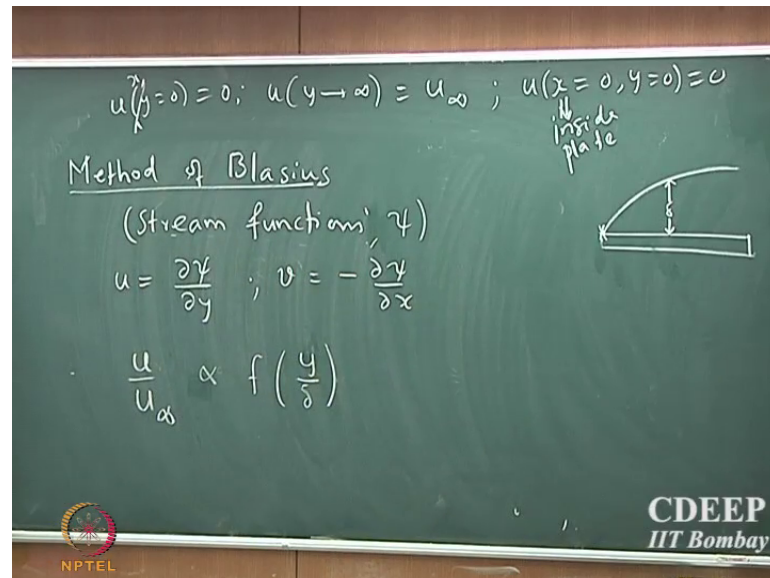 u(x, y=0) = 0; u(y→∞) = u∞; u(x=0, y=0)=0
inside
plate
Method of Blasius
(Stream function, ψ)
u = ∂ψ/∂y ; v = - ∂ψ/∂x
δ
u/u∞ ∝ f(y/δ)
CDEEP
IIT Bombay
NPTEL